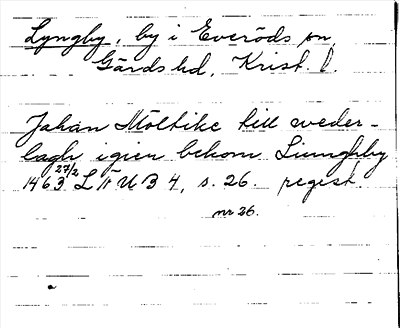 Lyngby, by i Everöds sn,
Gärds hd, Krist. l.
Jahan Moltike till weder-
lagh igien bekom Liunghby
1463 27/2 LÅUB 4, s. 26. regest
nr 26.